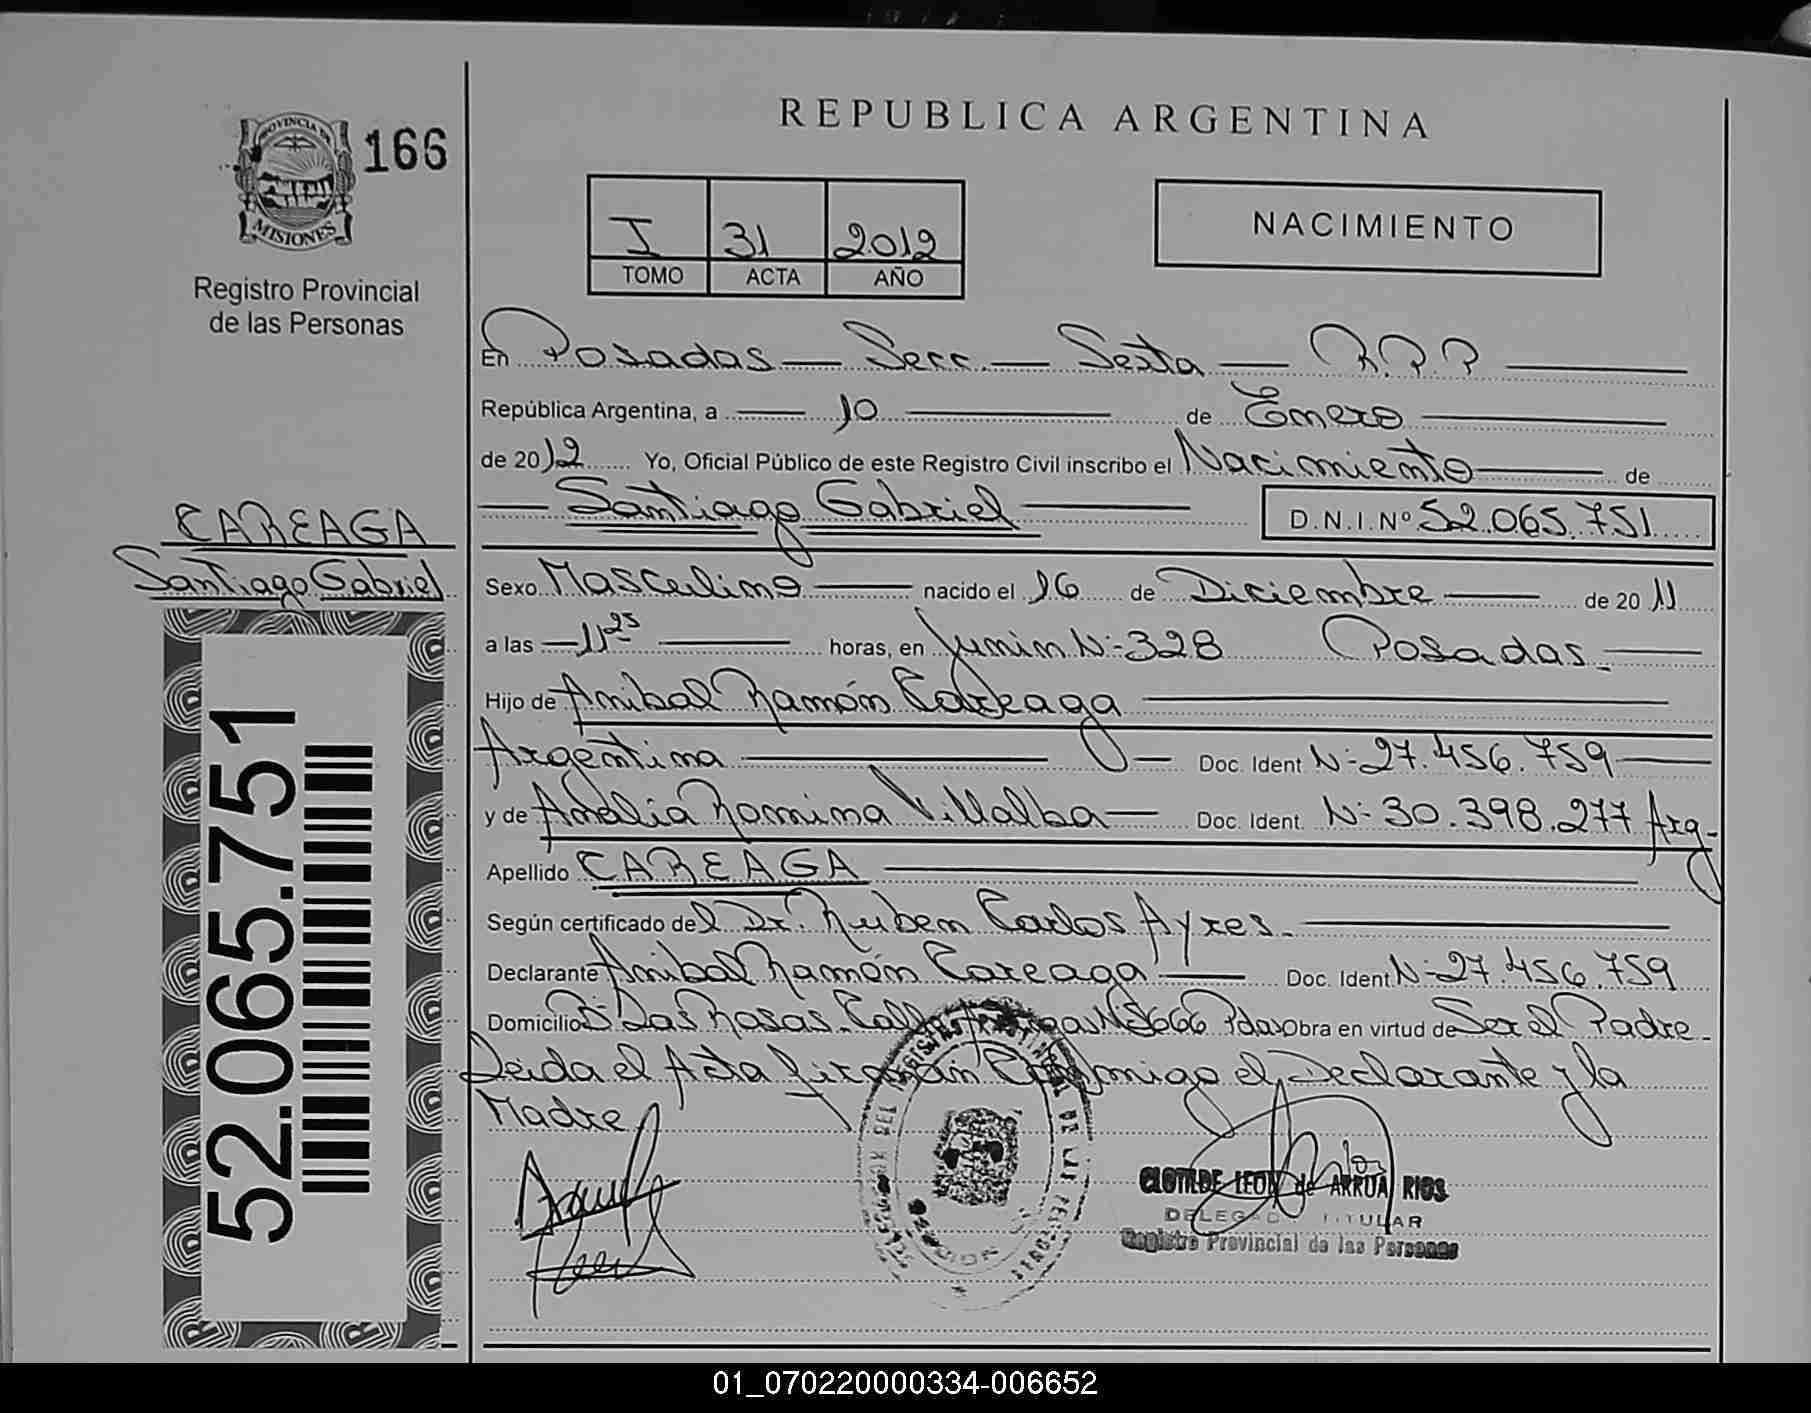 REPUBLICA ARGENTINA
PROVINCIA DE
MISIONES
166
Registro Provincial
de las Personas
I 31 2012
TOMO ACTA AÑO
NACIMIENTO
En Posadas — Secc. — Sexta — R.P.P
República Argentina, a 10 de Enero
de 2012 Yo, Oficial Público de este Registro Civil inscribo el Nacimiento de
Santiago Gabriel D.N.I. Nº 52.065.751
CAREAGA
Santiago Gabriel
Sexo Masculino nacido el 16 de Diciembre de 2011
a las 11 25 horas, en Junin N- 328 Posadas
Hijo de Anibal Ramón Careaga
Argentina Doc. Ident. N- 27.456.759
y de Amalia Romina Villalba Doc. Ident. N- 30.398.277 Arg-
Apellido CAREAGA
Según certificado del Dr. Ruben Carlos Ayres.
Declarante Anibal Ramón Careaga Doc. Ident. N- 27.456.759
Domicilio Bº Las Rosas. Calle 5666 Pdas Obra en virtud de Ser el Padre-
Leida el Acta firman Conmigo el Declarante y la
Madre
CLOTILDE LEON de ARRUA RIOS
DELEGADA TITULAR
Registro Provincial de las Personas
52.065.751
01_070220000334-006652